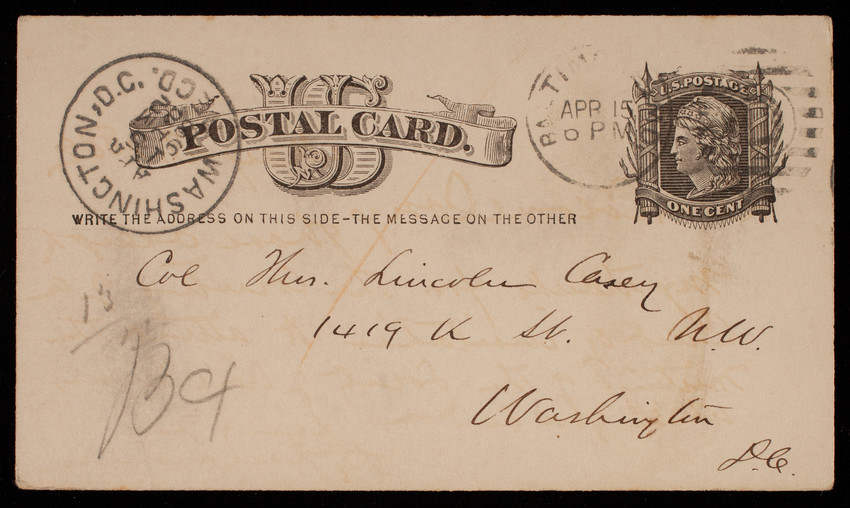 US
POSTAL CARD.
WASHINGTON, D.C.
APR 15
6 PM
U.S. POSTAGE
ONE CENT
WRITE THE ADDRESS ON THIS SIDE-THE MESSAGE ON THE OTHER
Col Thos. Lincoln Casey
1419 K St. N.W.
Washington
D.C.
13
B4